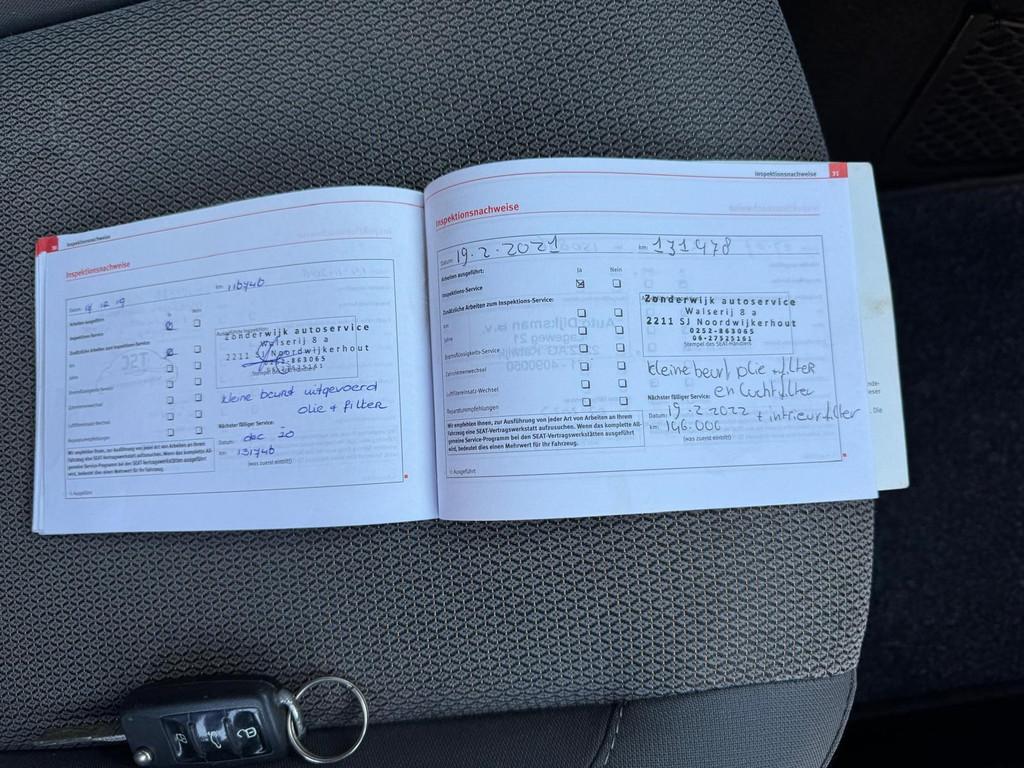 Inspektionsnachweise
Inspektionsnachweise
Datum: 12 19
km: 116740
Arbeiten ausgeführt: Ja Nein
Inspektions-Service
Zusätzliche Arbeiten zum Inspektions-Service:
km
Jahre
Bremsflüssigkeits-Service
Zahnriemenwechsel
Luftfiltereinsatz-Wechsel
Reparaturempfehlungen
Zonderwijk autoservice
Walserij 8 a
2211 SJ Noordwijkerhout
0252-863065
06-27525161
kleine beurt uitgevoerd
olie + filter
Nächster fälliger Service:
Datum: dec 20
km 131740
(was zuerst eintritt)
Wir empfehlen Ihnen, zur Ausführung von jeder Art von Arbeiten an Ihrem
Fahrzeug eine SEAT-Vertragswerkstatt aufzusuchen. Wenn das komplette All-
gemeine Service-Programm bei den SEAT-Vertragswerkstätten ausgeführt
wird, bedeutet dies einen Mehrwert für Ihr Fahrzeug.
Ausgeführt
Inspektionsnachweise 31
Inspektionsnachweise
Datum: 19.2.2021 km: 131478
Arbeiten ausgeführt: Ja Nein
Inspektions-Service
Zusätzliche Arbeiten zum Inspektions-Service:
km
Jahre
Bremsflüssigkeits-Service
Zahnriemenwechsel
Luftfiltereinsatz-Wechsel
Reparaturempfehlungen
Zonderwijk autoservice
Walserij 8 a
2211 SJ Noordwijkerhout
0252-863065
06-27525161
Stempel des SEAT-Händlers
kleine beurt, olie + filter
en luchtfilter
Nächster fälliger Service:
Datum: 19.2.2022 + intrieurfilter
km: 146.000
(was zuerst eintritt)
Wir empfehlen Ihnen, zur Ausführung von jeder Art von Arbeiten an Ihrem
Fahrzeug eine SEAT-Vertragswerkstatt aufzusuchen. Wenn das komplette All-
gemeine Service-Programm bei den SEAT-Vertragswerkstätten ausgeführt
wird, bedeutet dies einen Mehrwert für Ihr Fahrzeug.
Ausgeführt